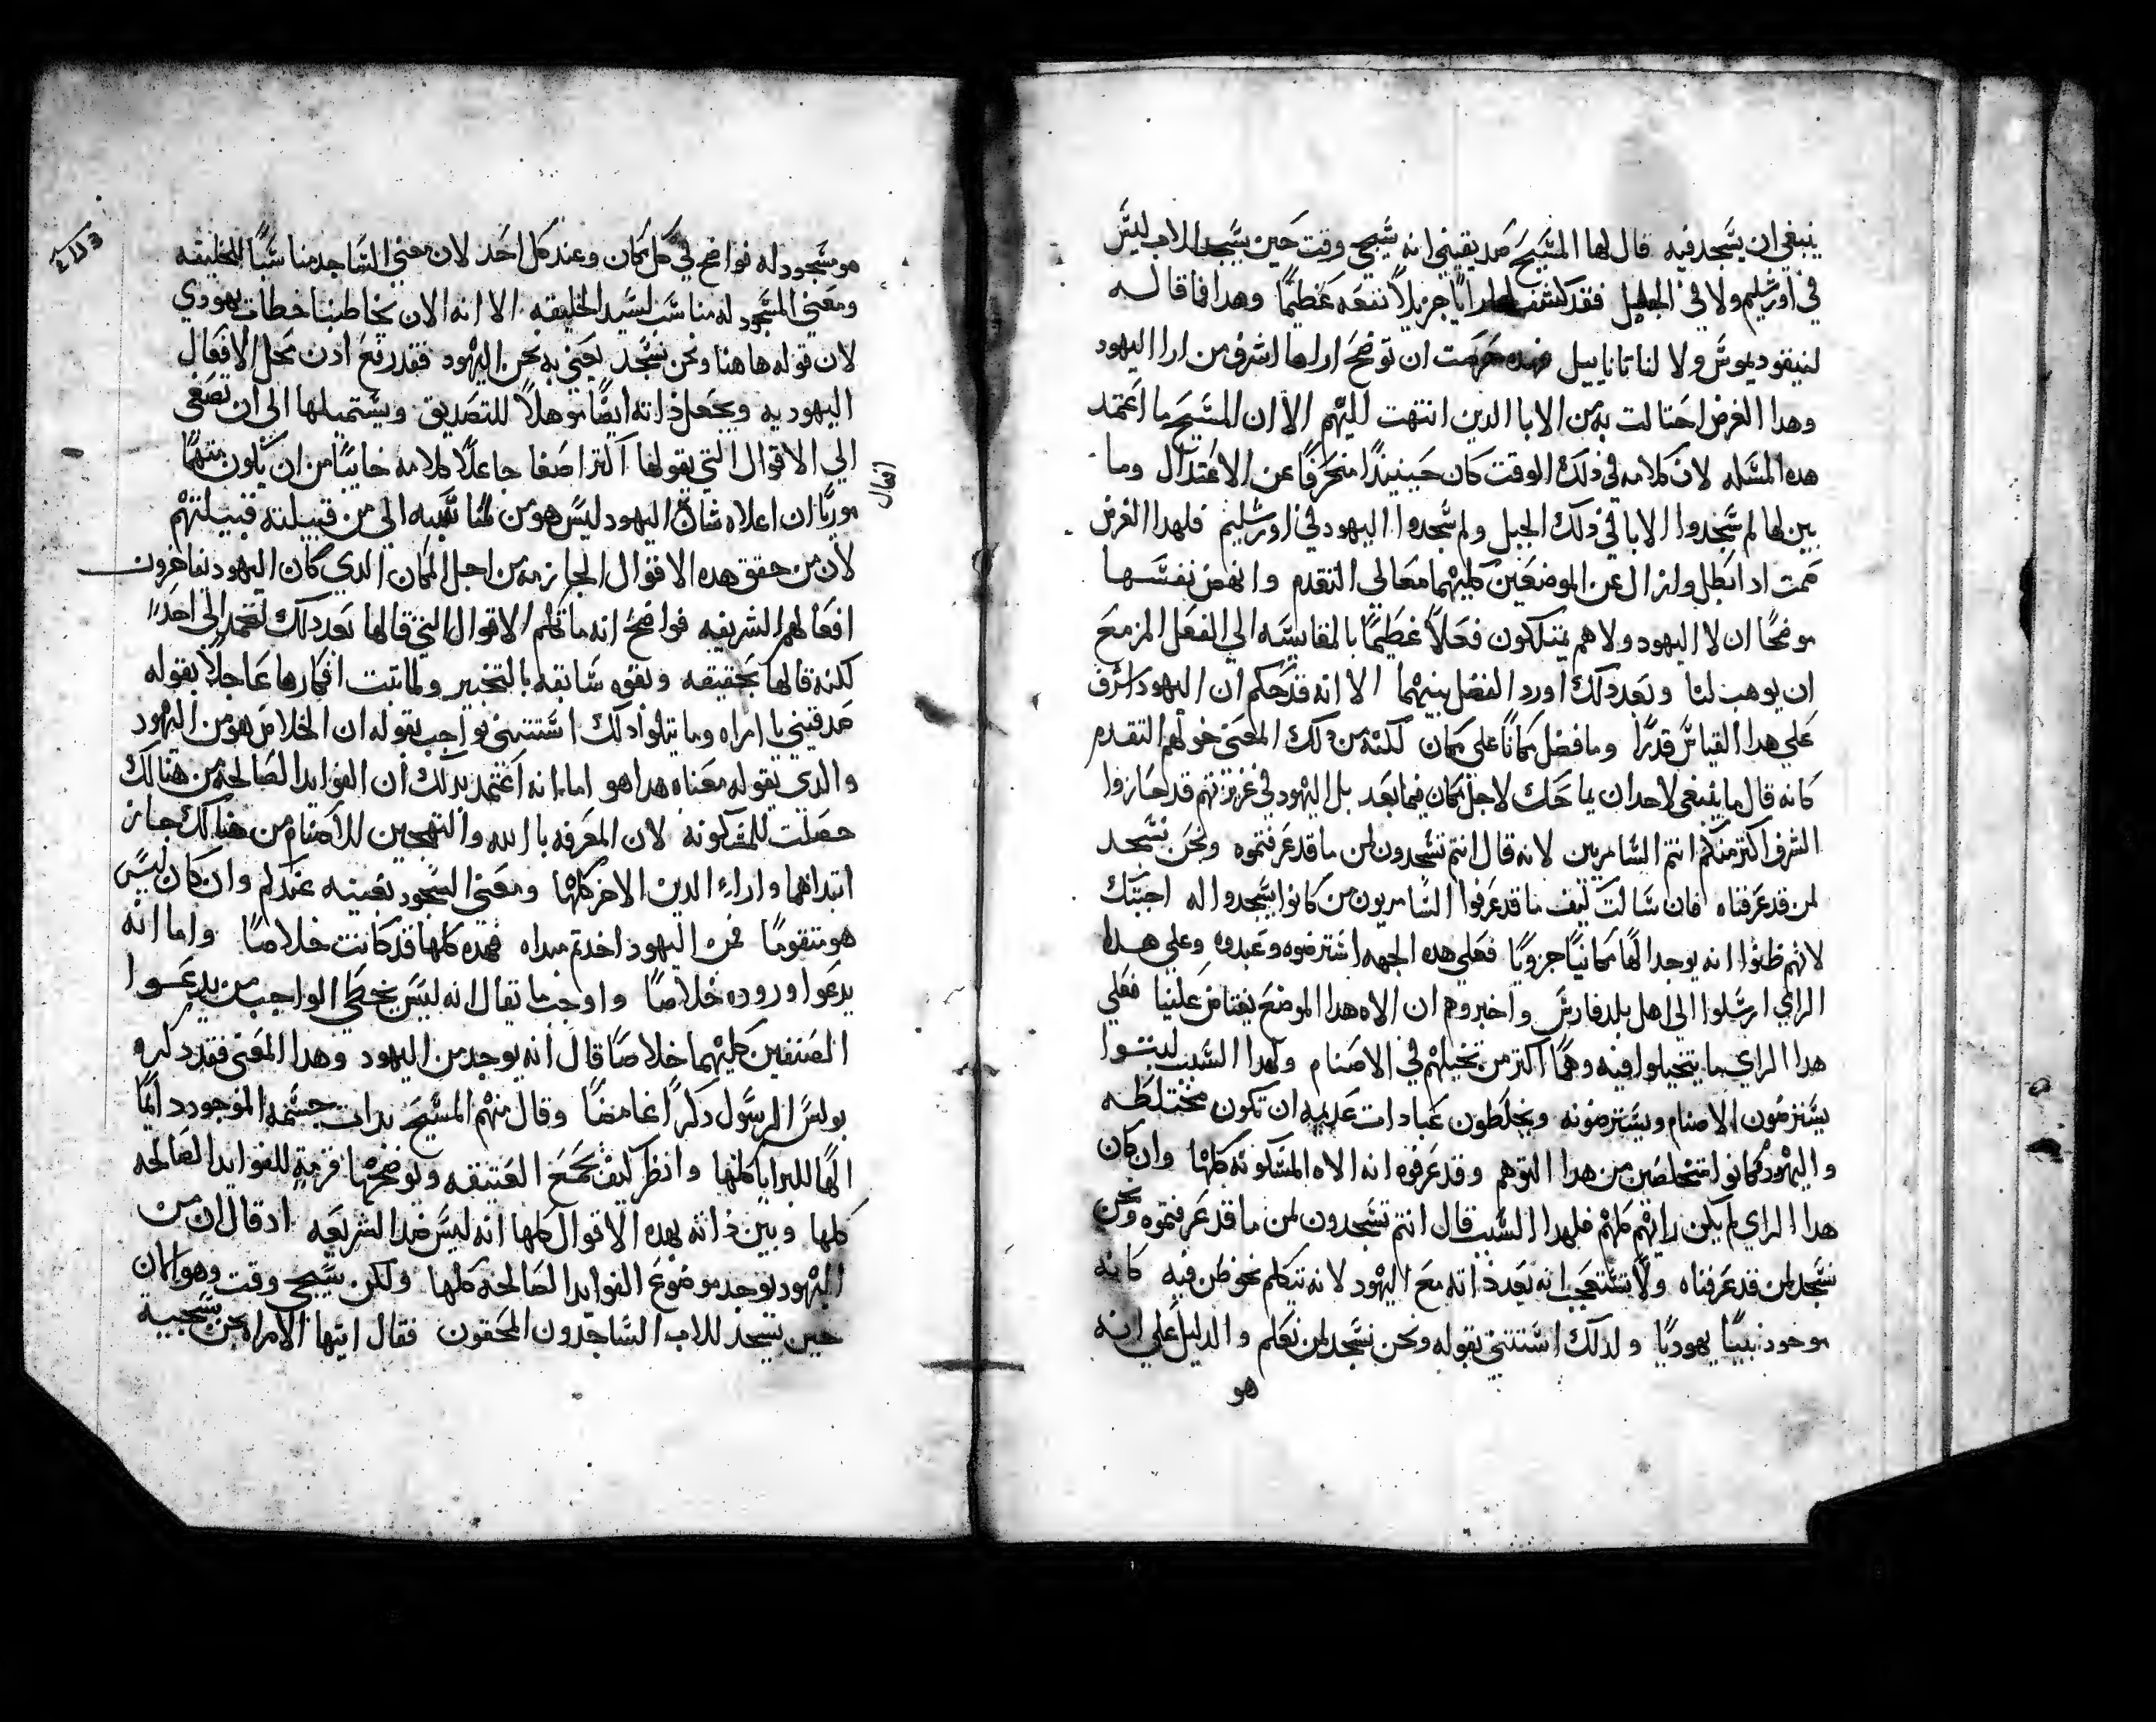 ينبغي ان يسجد فيه قال لها المسيح صديقيني انه سيجي وقت حين يسجد للاب ليس
في اورشليم ولا في الجليل فقد كشف لها رايًا جزيلًا نفعه عظيمًا وهدا فما قاله
لنيقوديموس ولا لناتاناييل فهده حرصت ان توضح اراها اشرف من ارا اليهود
وهدا الغرض احتالت به من الابا الدين انتهت اليهم الا ان المسيح ما اعتمد
هده المسله لان كلامه في ذلك الوقت كان حينيدًا منحرفًا عن الاعتدال وما
بين لها لم سجدوا الابا في ذلك الجبل ولم سجدوا اليهود في اورشليم فلهدا الغرض
صمت اد ابطل وازال عن الموضعين كليهما معالي التقدم وانهض نفسها
موضحًا ان لا اليهود ولا هم يمتلكون فعلًا عظيمًا بالمقايسه الي الفعل المزمع
ان يوهب لنا وبعد دلك اورد الفضل بينهما الا انه قد حكم ان اليهود اشرف
علي هدا القياس قدرًا وما فضل مكانًا علي مكان لكنه من دلك المعني خولهم التقدم
كانه قال ما ينبغي لاحد ان يماحك لاجل مكان فيما بعد بل اليهود في غريزتهم قد حازوا
الشرف اكثر منكم انتم السامريين لانه قال انتم تسجدون لمن ما قد عرفتموه ونحن نسجد
لمن قد عرفناه فان سالت كيف ما قد عرفوا السامريون من كانوا يسجدوا له اجبتك
لانهم ظنوا انه يوجد الهًا مكانيًا جزويًا فعلي هده الجهه استرضوه وعبدوه وعلي هدا
الراي ارسلوا الي اهل بلد فارس واخبروهم ان الاه هدا الموضع يغتاض علينا فعلي
هدا الراي ما يتخيلوا فيه وهمًا اكتر من تخيلهم في الاصنام ولهدا السبب لبتوا
يسترضون الاصنام ويسترضونه ويخلطون عبادات عديمه ان تكون مختلطه
واليهود فكانوا متخلصين من هدا التوهم وقد عرفوه انه الاه المسكونه كلها وان كان
هدا الراي لم يكن رايهم كلهم فلهدا السبب قال انتم تسجدون لمن ما قد عرفتموه ونحن
نسجد لمن قد عرفناه ولا تستعجب انه يعد ذاته مع اليهود لانه يتكلم نحو ظن فيه كانه
موجود نبيًا يهوديًا ولدلك استتني بقوله ونحن نسجد لمن نعلم والدليل علي انه
هو
هو مسجود له فواضح في كل مكان وعند كل احد لان معني الساجد مناسبًا للخليقه
ومعني المسجود له مناسب لسيد الخليقه الا انه الان يخاطبنا خطاب يهودي
لان قوله هاهنا ونحن نسجد يعني به نحن اليهود فقد رفع ادن محل الافعال
اليهوديه ويجعل ذاته ايضًا موهلًا للتصديق ويستميلها الي ان تصغي
الي الاقوال التي يقولها اكتر اصغا جاعلًا كلامه خايبًا من ان يكون متهمًا
موريًا ان اعلاه شان اليهود ليس هو من تنسبه الي من قبيلته قبيلتهم
لان من حقق هده الاقوال الجازمه من اجل المكان الدي كان اليهود يفاخرون
افعالهم الشريفه فواضح انه ما تكلم الاقوال التي قالها بعد دلك لتحمد الي احدًا
لكنه قالها بحقيقه وبقوه سابقه بالتخبير ولما تبت افكارها عاجلًا بقوله
صدقيني يا امراه وما يتلوا دلك استتني بواجب بقوله ان الخلاص هو من اليهود
والدي يقوله معناه هدا هو اما انه اعتمد بدلك ان الفوايد الصالحه من هنالك
حصلت للمسكونه لان المعرفه بالله والتهجين للاصنام من هنالك حاز
ابتداهما واراء الدين الاخر كلها ومعني السجود بعينه عندكم وان كان ليس
هو متقومًا فمن اليهود اخد مبداه فهده كلها قد كانت خلاصًا واما انه
يدعوا وروده خلاصًا واوجب ما يقال انه ليس يخطي الواجب من يدعوا
الصنفين كليهما خلاصًا قال انه يوجد من اليهود وهدا المعني فقد دكره
بولس الرسول دكرًا غامضًا وقال منهم المسيح بدات جسمه الموجود دايمًا
الهًا للبرايا كلها وانظر كيف يجمع العتيقه ويوضحها قرمة للفوايد الصالحه
كلها وبين ذاته بهده الاقوال كلها انه ليس ضد الشريعه ادقال ان من
اليهود يوجد موضوع الفوايد الصالحه كلها ولكن سيجي وقت وهو الان
حين يسجد للاب الساجدون المحقون فقال ايتها الامراه نحن